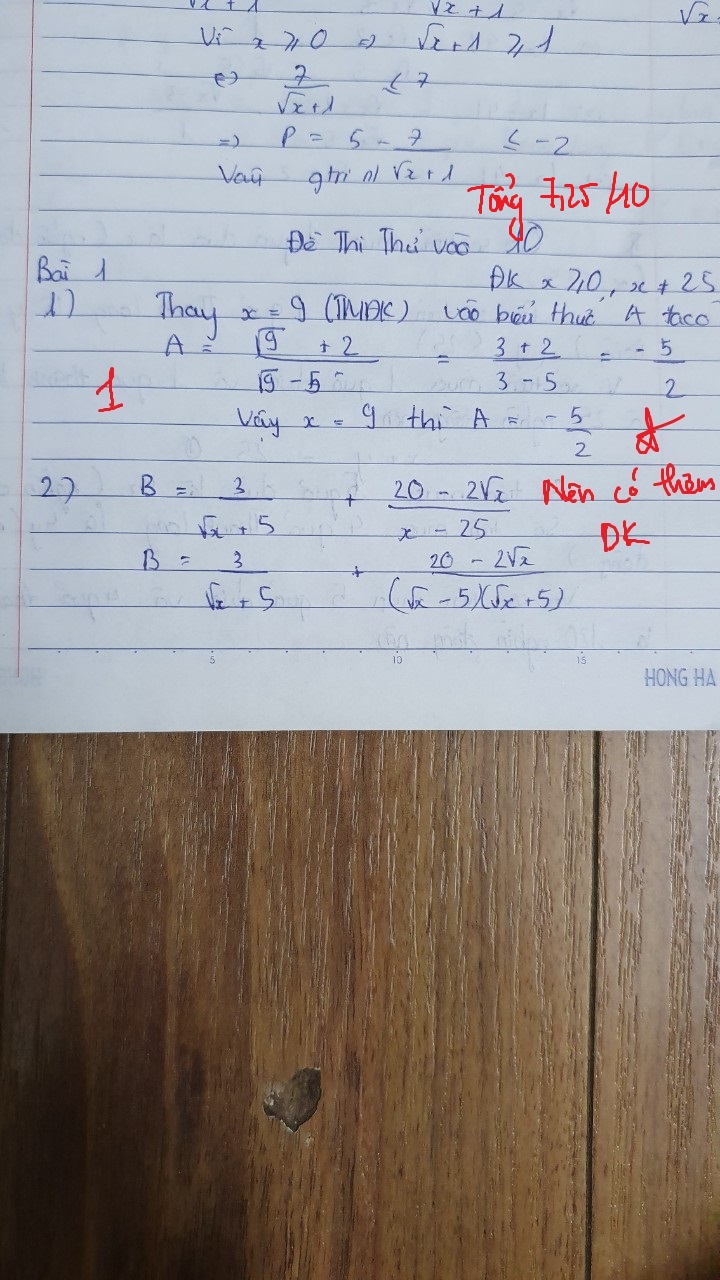 √x + 1 √x + 1 √x
Vì x ⩾ 0 => √x + 1 ⩾ 1
<=> 7/(√x + 1) ≤ 7
=> P = 5 - 7/(√x + 1) ≤ -2
Tổng 7,25/10
Đề Thi Thử vào 10
Bài 1 ĐK x ⩾ 0, x ≠ 25
1) Thay x = 9 (TMĐK) vào biểu thức A ta có
A = (√9 + 2)/(√9 - 5) = (3 + 2)/(3 - 5) = - 5/2
1
Vậy x = 9 thì A = - 5/2
2) B = 3/(√x + 5) + (20 - 2√x)/(x - 25) Nên có thêm
ĐK
B = 3/(√x + 5) + (20 - 2√x)/((√x - 5)(√x + 5))
5 10 15
HONG HA